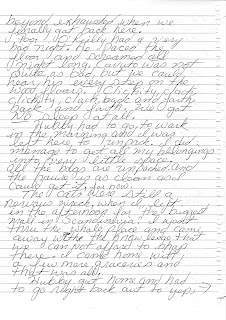 beyond exhausted when we
finally got back here.
Kelly had a very
bad night. He paced the
floor and screamed all
night long. was not
quite as bad, but we could
hear his every step on the
wood floors. Clickity, clack,
clickity, clack, back and forth
back and forth. We got
no sleep at all.
Hubby had to go to work
in the morning and I was
left here, to unpack. I did
manage to get all my belongings
into every little space.
All the bags are unpacked and
the house is as clean as I
could get it, for now.
The cats were still a
nervous wreck, when I left
in the afternoon for the biggest
mall in I went
thru the whole place and came
away with the knowledge that
we can not afford to shop
there. I came home with
a few more groceries and
that was all.
Hubby got home and had
to go right back out to